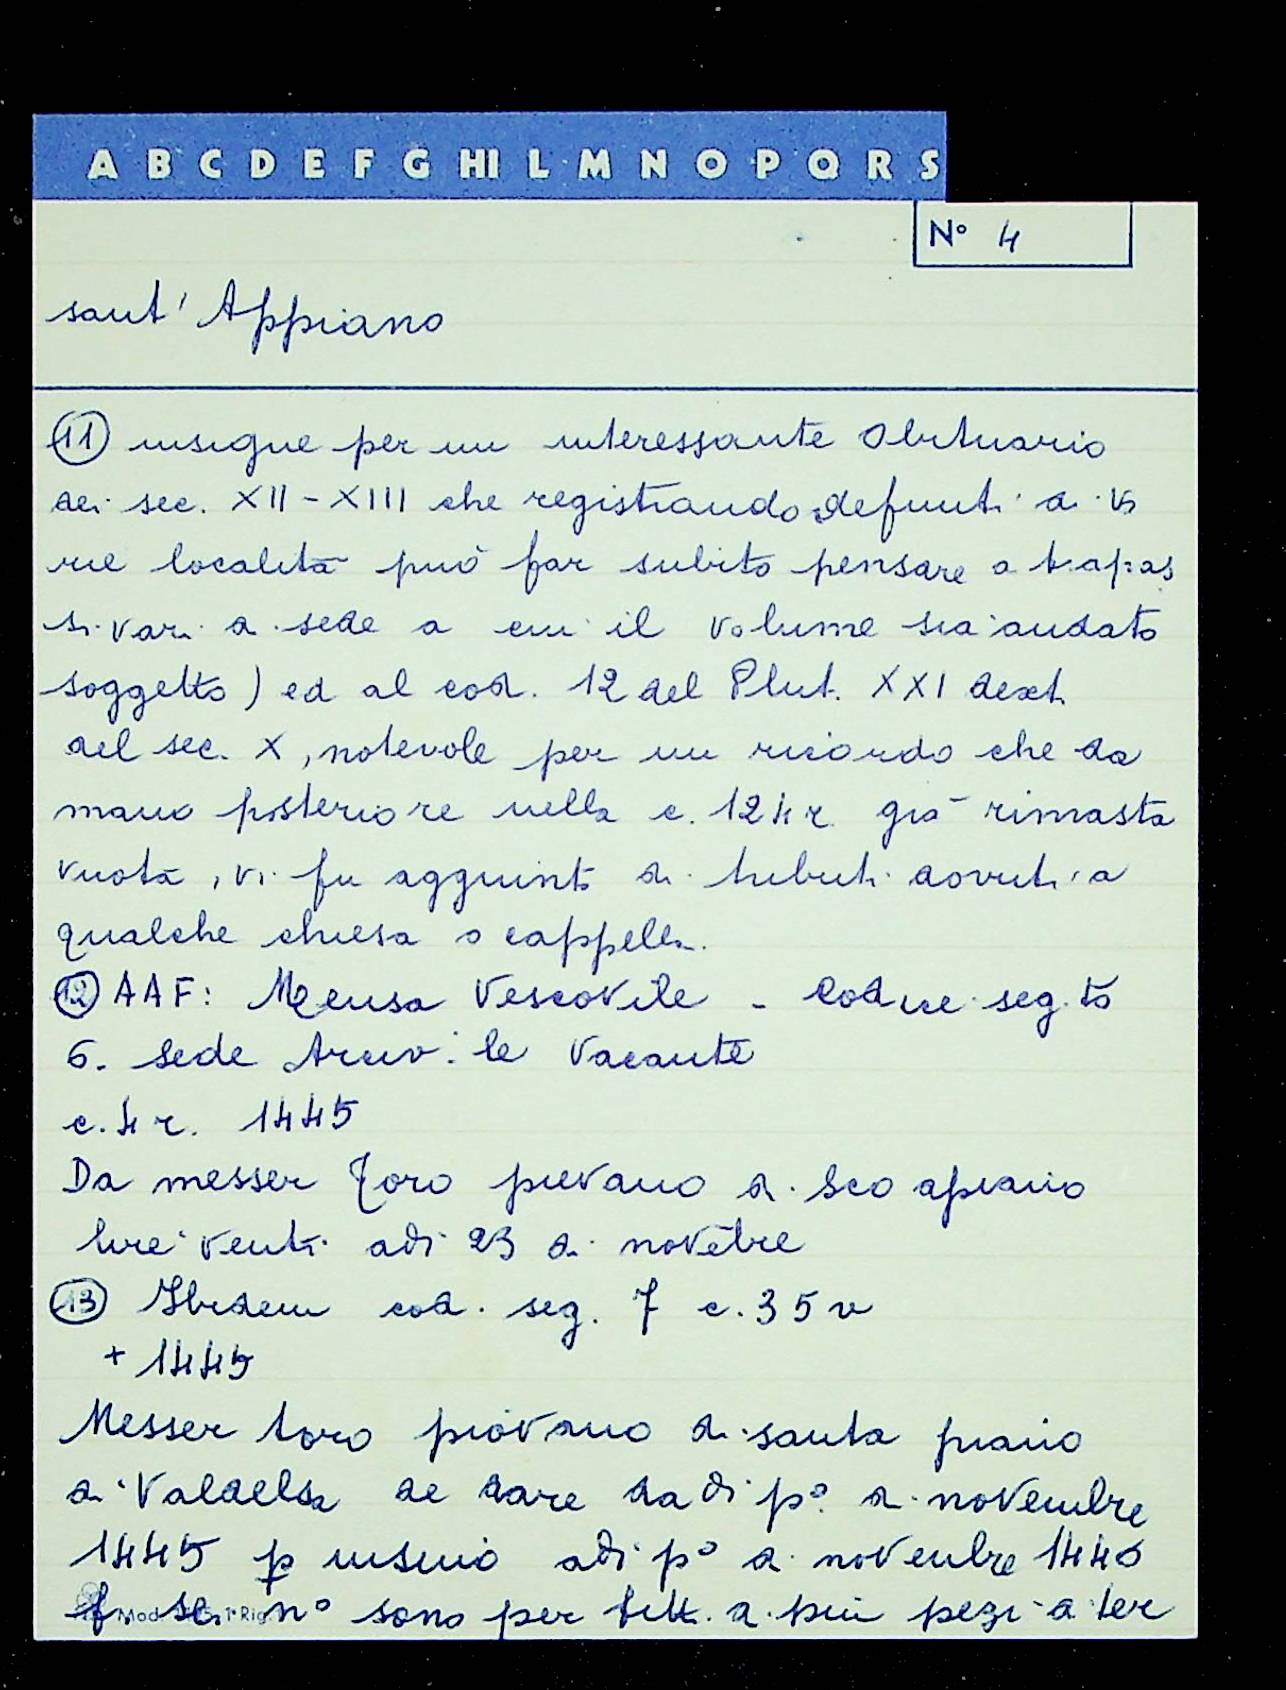 A B C D E F G HI L M N O P Q R S
N° 4
sant' Appiano
11 insigne per un interessante Obituario
dei sec. XII - XIII che registrando defunti di va
rie località può far subito pensare a trapas
si vari di sede a cui il volume sia andato
soggetto) ed al cod. 12 del Plut. XXI dext.
del sec. X, notevole per un ricordo che da
mano posteriore nella c. 124r già rimasta
vuota, vi fu aggiunto di tributi dovuti a
qualche chiesa o cappella.
12 AAF: Mensa Vescovile - Codice seg.to
6. Sede Arciv.le Vacante
c. 4r. 1445
Da messer Toro pievano di Sco apiano
lire venti adi 23 di novēbre
13 Ibidem cod. seg. 7 c. 35v
+ 1445
Messer toro piovano di santa piano
di Valdelsa de dare da di p° di novembre
1445 p insino adi p° di novenbre 1446
f. sei n° sono per fitt. di più pezi di ter